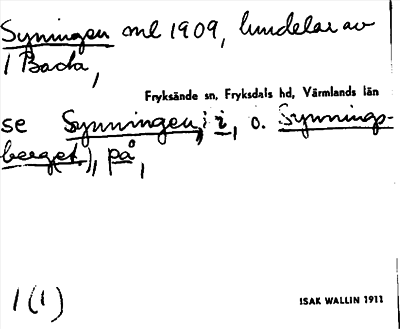 Syningen ml 1909, lundelar av
1 Backa,
Fryksände sn, Fryksdals hd, Värmlands län
se Synningen, i, o. Synnings-
berg(et), på,
1(1)
ISAK WALLIN 1911